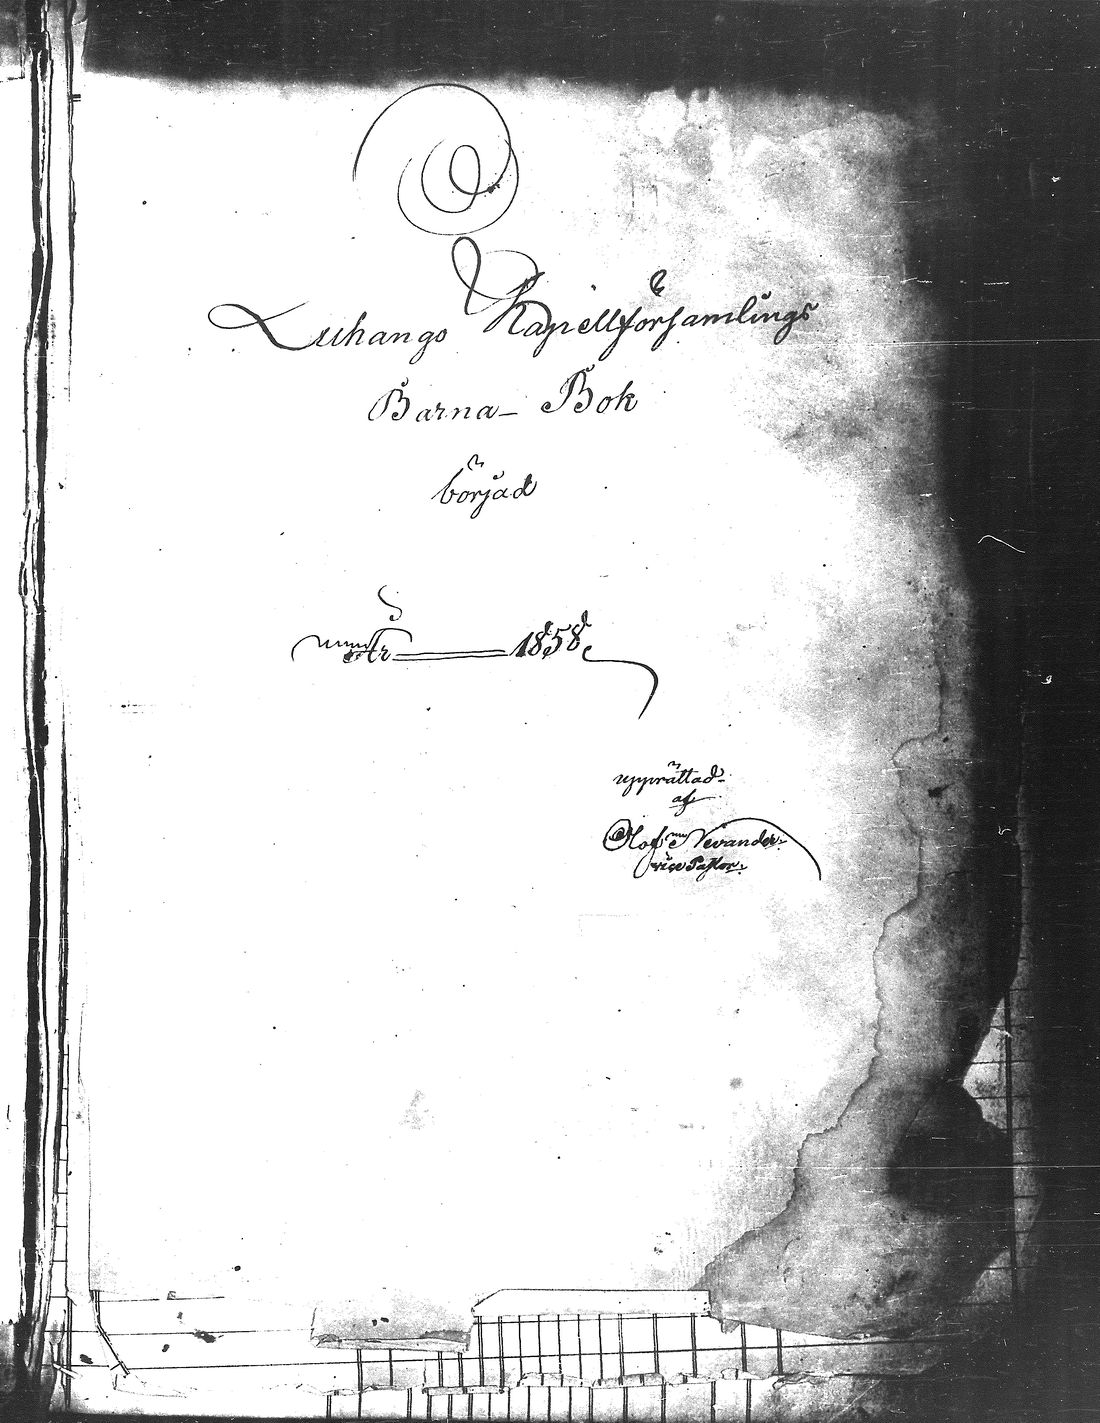 Luhango Kapellförsamlings
Barna-Bok
började
År 1858
upprättad
af
Olof Nevander
vice Pastor.